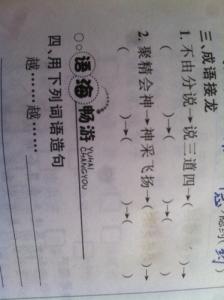 三、成语接龙
1. 不由分说→说三道四→(    )→
(    )→(    )
2. 聚精会神→神采飞扬→(    )→
(    )→(    )→(    )
语海畅游
YUHAI CHANGYOU
四、用下列词语造句
越……越……